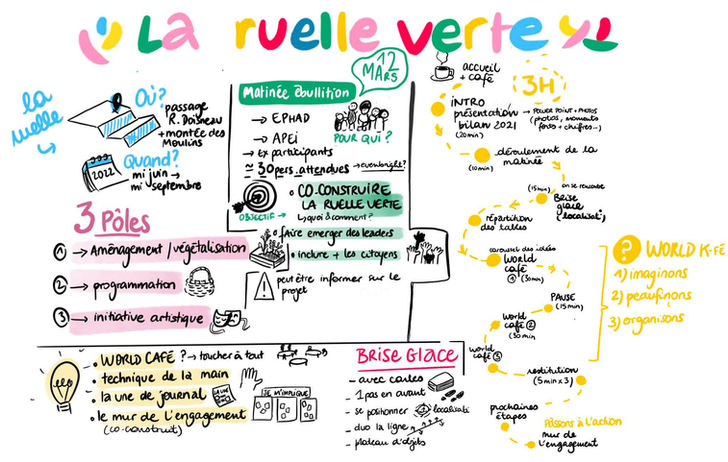 La ruelle verte
la ruelle
Où?
passage
R. Doisneau
+ montée des
Moulins
Quand?
2022
mi juin →
mi septembre
3 Pôles
1 → Aménagement / végétalisation
2 → programmation
3 → initiative artistique
12
MARS
Matinée Boullition
→ EPHAD
→ APEi
→ Ex participants
≃ 30 pers. attendues → eventbright?
POUR QUI?
OBJECTIF
• CO-CONSTRUIRE
LA RUELLE VERTE
↳ quoi & comment?
• faire emerger des leaders
• inclure + les citoyens
! peut être informer sur le
projet
• WORLD CAFÉ ? → toucher à tout
• technique de la main
• la une de journal
LA UNE
• le mur de l'engagement
(co-construit)
JE M'IMPLIQUE
BRISE GLACE
– avec cartes
– 1 pas en avant
– se positionner
localisati
– duo la ligne
– plateau d'objets
accueil
+ café
3H
INTRO
présentation
bilan 2021
(20min)
→ POWER POINT + PHOTOS
(photos, moments
forts + chiffres...)
déroulement de la
matinée
(10min)
(15min)
on se rencontre
Brise
glace
localisati
répartition
des tables
carousel des idées
World
café
1 (30min)
PAUSE
(15min)
World
café 2
(30min
world
café 3
restitution
(5min x 3)
prochaines
étapes
Passons à l'action
mur de
l'engagement
? WORLD K-FÉ
1) imaginons
2) peaufinons
3) organisons